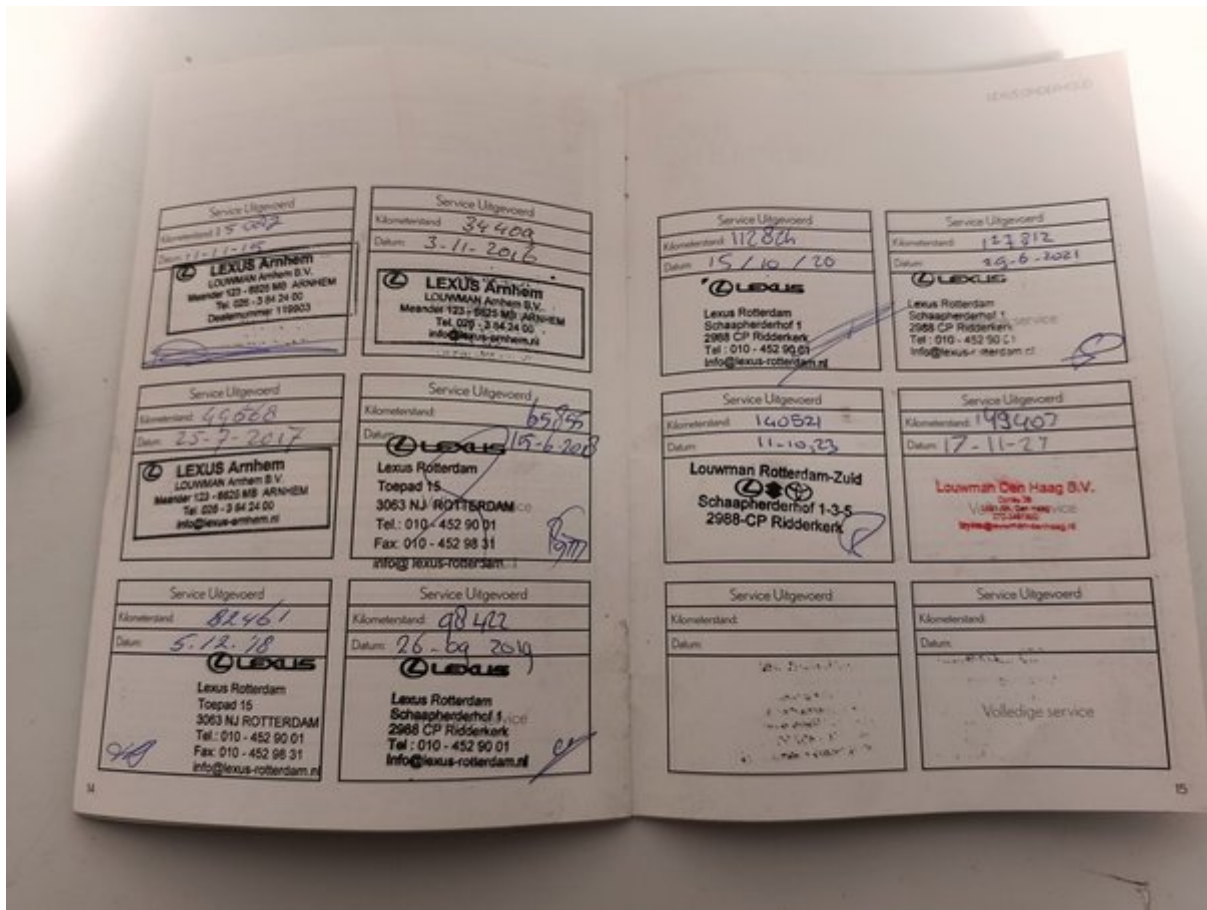 LEXUS ONDERHOUD
Service Uitgevoerd
Kilometerstand:
Datum:
LEXUS Arnhem
LOUWMAN Arnhem B.V.
Meander 123 - 6825 MB ARNHEM
Tel. 026 - 3 84 24 00
Dealernummer 119903
Service Uitgevoerd
Kilometerstand: 34409
Datum: 3-11-2016
LEXUS Arnhem
LOUWMAN Arnhem B.V.
Meander 123 - 6825 MB ARNHEM
Tel. 026 - 3 84 24 00
info@lexus-arnhem.nl
Service Uitgevoerd
Kilometerstand: 49568
Datum: 25-7-2017
LEXUS Arnhem
LOUWMAN Arnhem B.V.
Meander 123 - 6825 MB ARNHEM
Tel. 026 - 3 84 24 00
info@lexus-arnhem.nl
Service Uitgevoerd
Kilometerstand:
Datum: 15-6-2018
LEXUS
Lexus Rotterdam
Toepad 15
3063 NJ ROTTERDAM
Tel.: 010 - 452 90 01
Fax: 010 - 452 98 31
info@lexus-rotterdam
Service Uitgevoerd
Kilometerstand: 82461
Datum: 5.12.'18
LEXUS
Lexus Rotterdam
Toepad 15
3063 NJ ROTTERDAM
Tel.: 010 - 452 90 01
Fax: 010 - 452 98 31
info@lexus-rotterdam.nl
Service Uitgevoerd
Kilometerstand: 98422
Datum: 26-09 2019
LEXUS
Lexus Rotterdam
Schaapherderhof 1
2988 CP Ridderkerk
Tel : 010 - 452 90 01
Info@lexus-rotterdam.nl
14
Service Uitgevoerd
Kilometerstand:
Datum: 15/10/20
LEXUS
Lexus Rotterdam
Schaapherderhof 1
2988 CP Ridderkerk
Tel : 010 - 452 90 01
Info@lexus-rotterdam.nl
Service Uitgevoerd
Kilometerstand: 127812
Datum: 29-6-2021
LEXUS
Lexus Rotterdam
Schaapherderhof 1
2988 CP Ridderkerk
Tel : 010 - 452 90 01
Info@lexus-rotterdam.nl
Service Uitgevoerd
Kilometerstand: 140521
Datum: 11-10,23
Louwman Rotterdam-Zuid
Schaapherderhof 1-3-5
2988-CP Ridderkerk
Service Uitgevoerd
Kilometerstand: 149407
Datum: 17-11-27
Louwman Den Haag B.V.
Service Uitgevoerd
Kilometerstand:
Datum:
Service Uitgevoerd
Kilometerstand:
Datum:
Volledige service
15